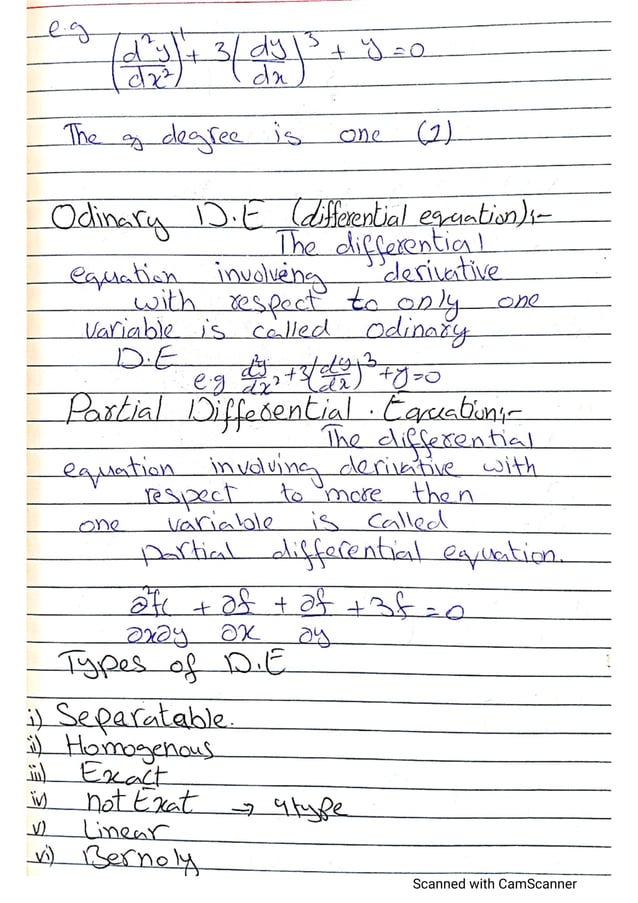 e.g
(d²y/dx²)¹ + 3(dy/dx)³ + y = 0
The degree is one (1)
Odinary D.E (differential equation):-
The differential
equation involving derivative
with respect to only one
variable is called Odinary
D.E
e.g d²y/dx² + 3(dy/dx)³ + y = 0
Partial Differential . Equation:-
The differential
equation involving derivative with
respect to more then
one variable is called
partial differential equation.
∂²f/∂x∂y + ∂f/∂x + ∂f/∂y + 3f = 0
Types of D.E
i) Separatable.
ii) Homogenous
iii) Exact
iv) not Exat → 4type
v) Linear
vi) Bernoly
Scanned with CamScanner